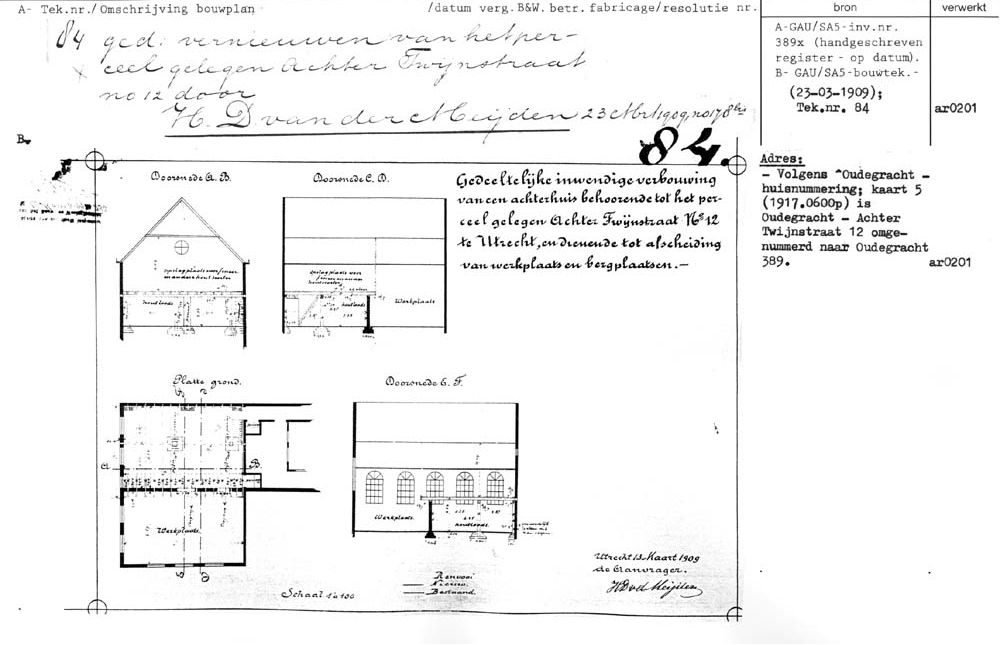 A- Tek.nr./Omschrijving bouwplan
/datum verg.B&W. betr. fabricage/resolutie nr.
bron
verwerkt
84 ged: vernieuwen van het per-
x ceel gelegen Achter Twijnstraat
no 12 door
H. D. van der Meijden 23 Mrt 1909, no 178
A-GAU/SA5-inv.nr.
389x (handgeschreven
register - op datum).
B- GAU/SA5-bouwtek.-
(23-03-1909);
Tek.nr. 84
ar0201
B.
84.
Adres:
- Volgens "Oudegracht -
huisnummering; kaart 5
(1917.0600p) is
Oudegracht - Achter
Twijnstraat 12 omge-
nummerd naar Oudegracht
389.
ar0201
Doorsnede A.B.
Doorsnede C.D.
Gedeeltelijke inwendige verbouwing
van een achterhuis behoorende tot het per-
ceel gelegen Achter Twijnstraat No 12
te Utrecht, en dienende tot afscheiding
van werkplaats en bergplaatsen.-
opslagplaats voor
houtloods
opslagplaats voor
houtloods
Werkplaats
Platte grond.
Doorsnede E.F.
A
B.
Werkplaats
Werkplaats
houtloods.
Utrecht 13 Maart 1909
de Aanvrager.
HDvd Meijden
Renvooi
Nieuw.
Bestaand.
Schaal 1 à 100